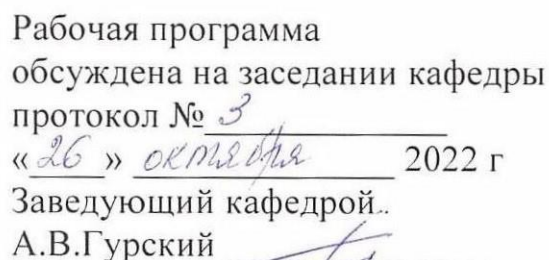 Рабочая программа
обсуждена на заседании кафедры
протокол № 3
«26» октября 2022 г
Заведующий кафедрой
А.В.Гурский